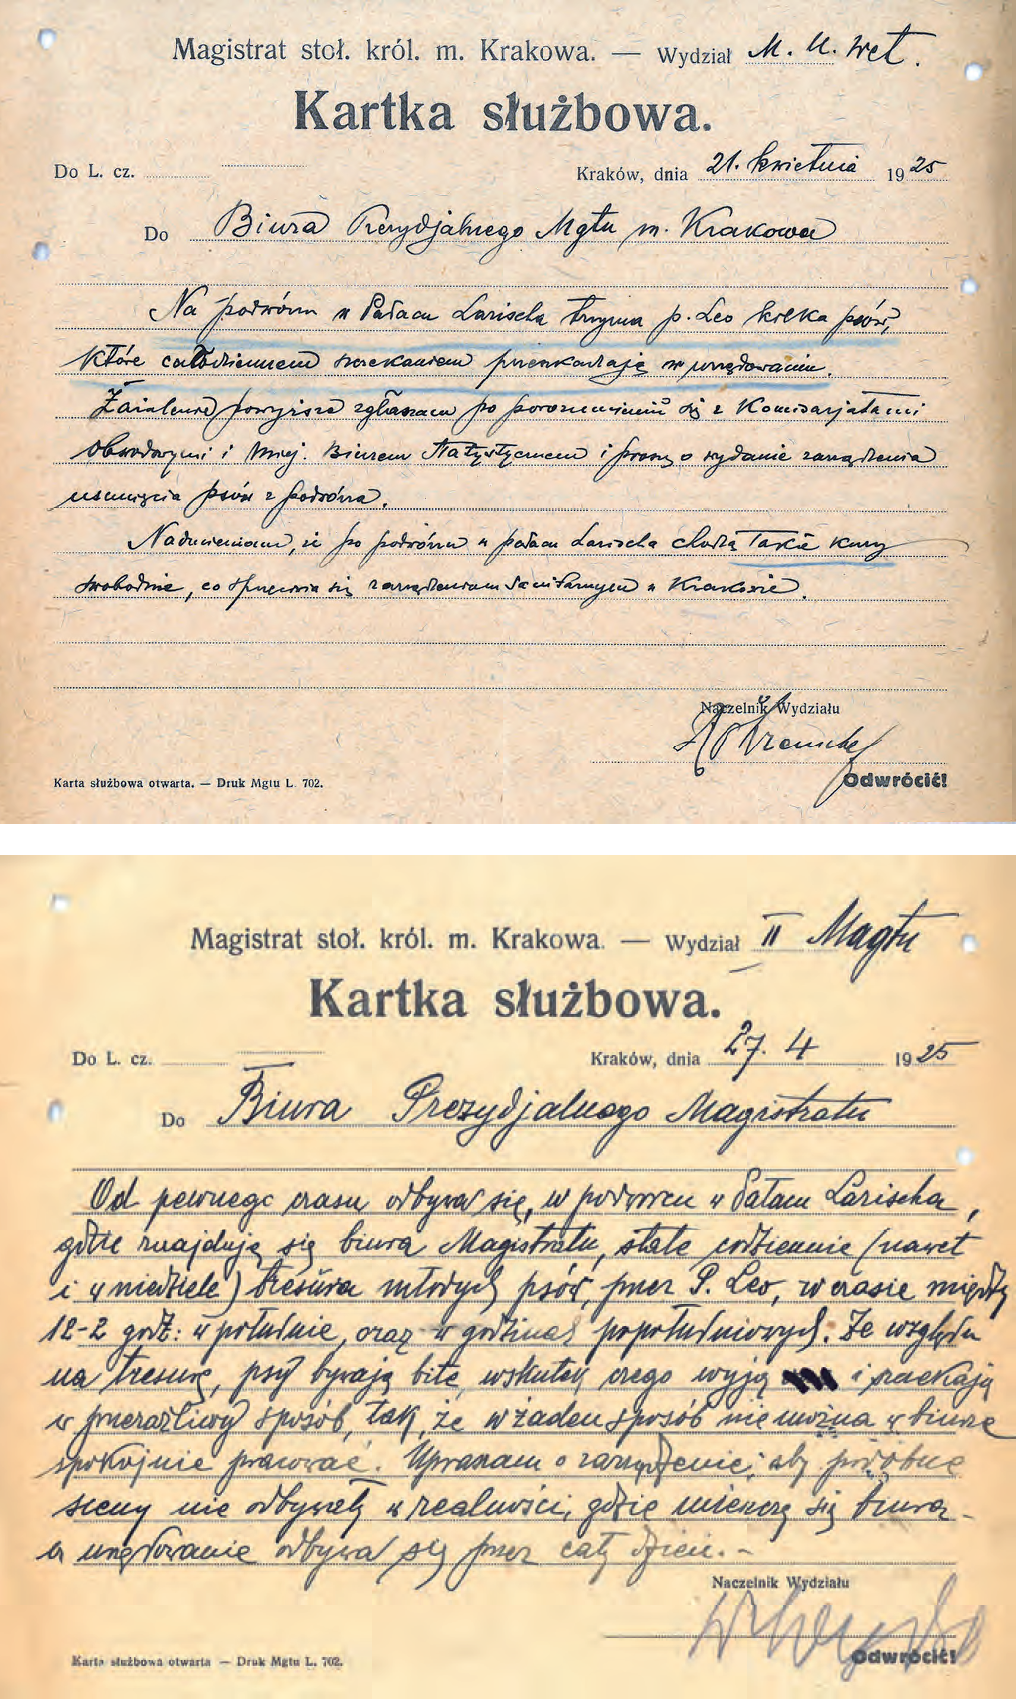 Magistrat stoł. król. m. Krakowa. — Wydział M. U. Wet.
Kartka służbowa.
Do L. cz. Kraków, dnia 21. kwietnia 1925
Do Biura Prezydjalnego Mgtu m. Krakowa
Na podwórzu w Pałacu Larischa trzyma p. Leo kilka psów,
które całodziennem szczekaniem przeszkadzają w urzędowaniu.
Zażalenie powyższe zgłaszam po porozumieniu się z Komisarjatami
Obwodowymi i Miej. Biurem Statystycznem i proszę o wydanie zarządzenia
usunięcia psów z podwórza.
Nadmieniam, że po podwórzu w pałacu Larischa chodzą także kury
swobodnie, co sprzeciwia się zarządzeniom sanitarnym w Krakowie.
Naczelnik Wydziału
Odwrócić!
Karta służbowa otwarta. — Druk Mgtu L. 702.
Magistrat stoł. król. m. Krakowa. — Wydział II Magtu
Kartka służbowa.
Do L. cz. Kraków, dnia 27. 4 1925
Do Biura Prezydjalnego Magistratu
Od pewnego czasu odbywa się, w podworcu w Pałacu Larischa,
gdzie znajdują się biura Magistratu, stale codziennie (nawet
i w niedziele) tresura młodych psów, przez P. Leo, w czasie między
12-2 godz: w południe, oraz w godzinach popołudniowych. Ze względu
na tresurę, psy bywają bite, wskutek czego wyją i szczekają
w przeraźliwy sposób, tak, że w żaden sposób nie można w biurze
spokojnie pracować. Upraszam o zarządzenie, aby podobne
sceny nie odbywały w realności, gdzie mieszczą się biura
a urzędowanie odbywa się przez cały dzień. -
Naczelnik Wydziału
Odwrócić!
Karta służbowa otwarta — Druk Mgtu L. 702.